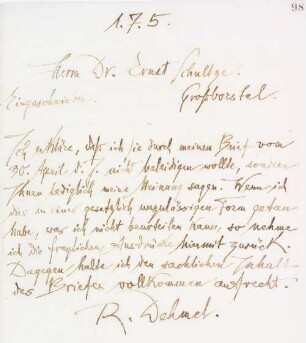 98
1.7.5.
Herrn Dr. Ernst Schultze.
Eingeschrieben.
Großborstel.
Ich erkläre, daß ich Sie durch meinen Brief vom
30. April d. J. nicht beleidigen wollte, sondern
Ihnen lediglich meine Meinung sagen. Wenn ich
dies in einer gesetzlich unzulässigen Form getan
habe, was ich nicht beurteilen kann, so nehme
ich die fraglichen Ausdrücke hiermit zurück.
Dagegen halte ich den sachlichen Inhalt
des Briefes vollkommen aufrecht.
R. Dehmel.